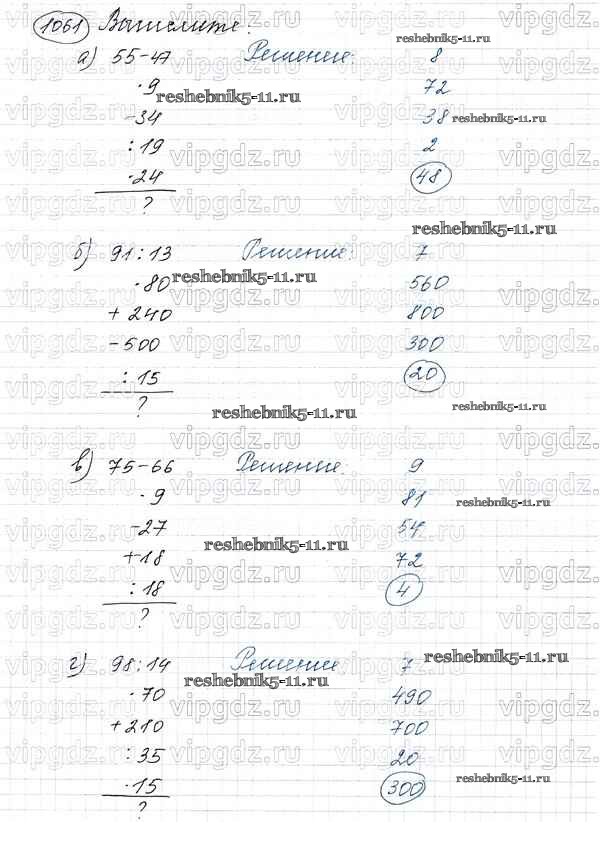 1061 Вычислите:
а) 55-47 Решение: 8
·9 72
-34 38
:19 2
·24 48
?
б) 91:13 Решение: 7
·80 560
+240 800
-500 300
:15 20
?
в) 75-66 Решение: 9
·9 81
-27 54
+18 72
:18 4
?
г) 98:14 Решение 7
·70 490
+210 700
:35 20
·15 300
?
reshebnik5-11.ru
vipgdz.ru